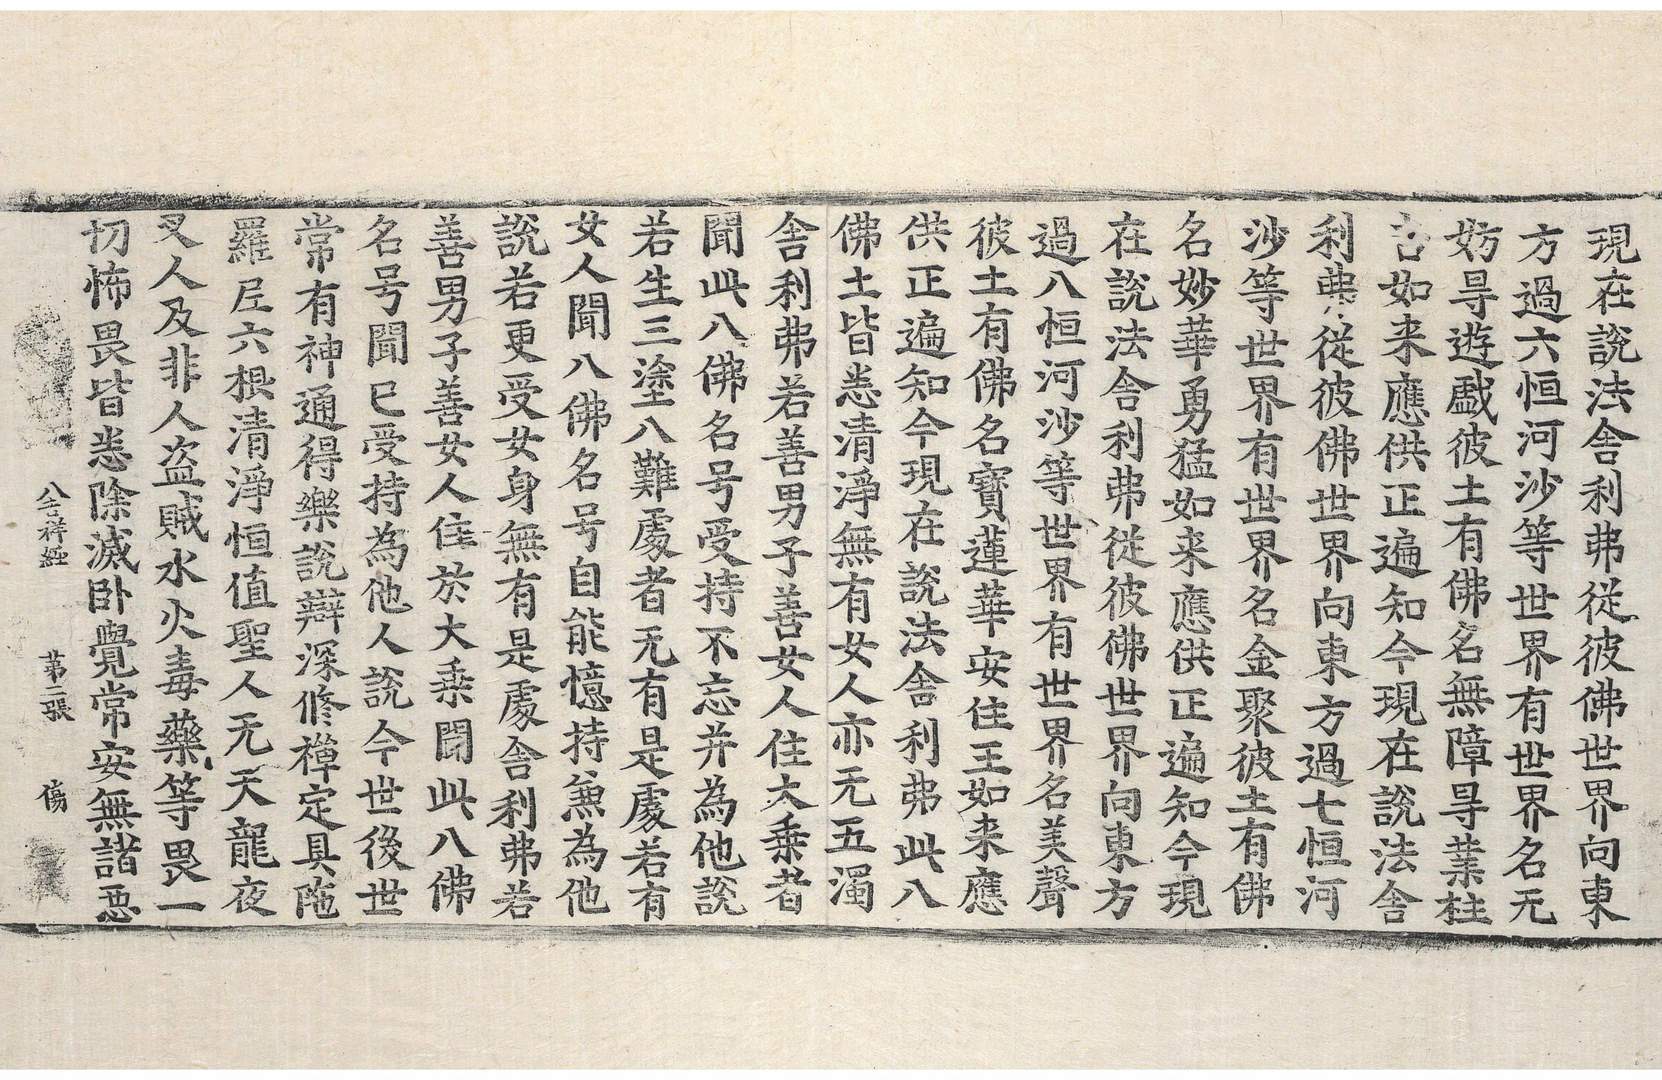 現在說法舍利弗從彼佛世界向東
方過六恒河沙等世界有世界名无
妨㝵遊戱彼土有佛名無障㝵業柱
吉如来應供正遍知今現在說法舍
利弗從彼佛世界向東方過七恒河
沙等世界有世界名金聚彼土有佛
名妙華勇猛如来應供正遍知今現
在說法舍利弗從彼佛世界向東方
過八恒河沙等世界有世界名美聲
彼土有佛名寳蓮華安住王如来應
供正遍知今現在說法舍利弗此八
佛土皆悉清淨無有女人亦无五濁
舍利弗若善男子善女人住大乗者
聞此八佛名号受持不忘并為他說
若生三塗八難處者无有是處若有
女人聞八佛名号自能憶持兼為他
說若更受女身無有是處舍利弗若
善男子善女人住於大乗聞此八佛
名号聞已受持為他人說今世後世
常有神通得樂說辯深修禪定具陁
羅尼六根清淨恒值聖人无天龍夜
叉人及非人盗賊水火毒藥等畏一
切怖畏皆悉除滅卧覺常安無諸惡
八吉祥經 第二張 傷